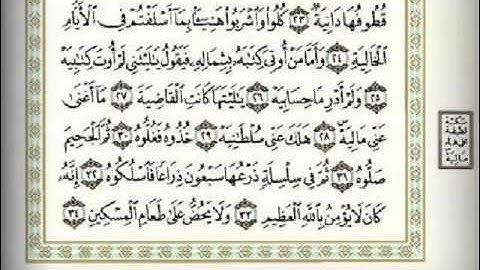 قُطُوفُهَا دَانِيَةٌ ٢٣ كُلُوا وَاشْرَبُوا هَنِيئًا بِمَا أَسْلَفْتُمْ فِي الْأَيَّامِ
الْخَالِيَةِ ٢٤ وَأَمَّا مَنْ أُوتِيَ كِتَابَهُ بِشِمَالِهِ فَيَقُولُ يَالَيْتَنِي لَمْ أُوتَ كِتَابِيَهْ
٢٥ وَلَمْ أَدْرِ مَا حِسَابِيَهْ ٢٦ يَالَيْتَهَا كَانَتِ الْقَاضِيَةَ ٢٧ مَا أَغْنَى
عَنِّي مَالِيَهْ ٢٨ هَلَكَ عَنِّي سُلْطَانِيَهْ ٢٩ خُذُوهُ فَغُلُّوهُ ٣٠ ثُمَّ الْجَحِيمَ
صَلُّوهُ ٣١ ثُمَّ فِي سِلْسِلَةٍ ذَرْعُهَا سَبْعُونَ ذِرَاعًا فَاسْلُكُوهُ ٣٢ إِنَّهُ
كَانَ لَا يُؤْمِنُ بِاللَّهِ الْعَظِيمِ ٣٣ وَلَا يَحُضُّ عَلَى طَعَامِ الْمِسْكِينِ ٣٤
سكتة
لطيفة
على هاء
ماليه